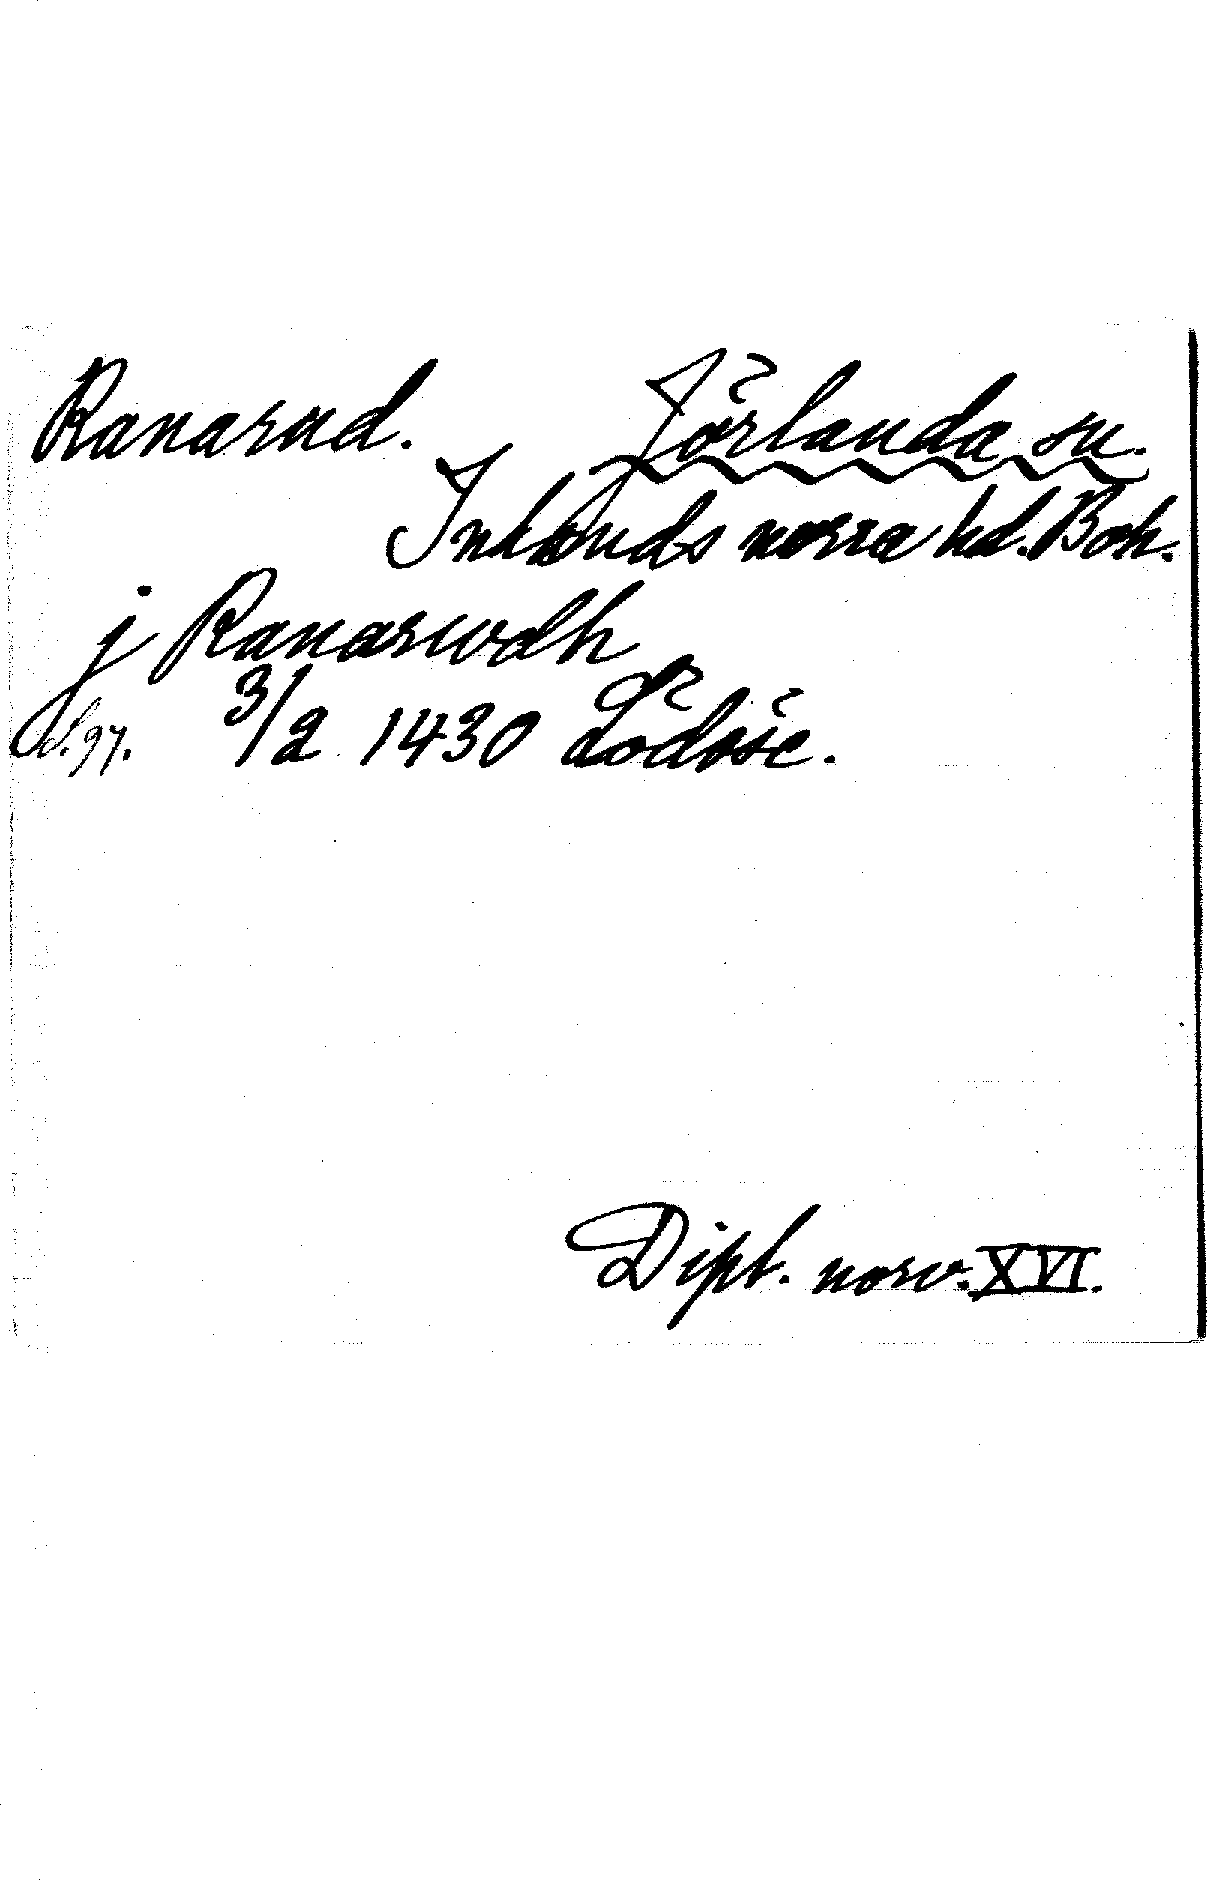 Ranarud. Jörlanda sn.
Inlands norra hd. Boh.
j Ranarwdh
S. 97. 3/2 1430 Lödöse.
Dipl. norv. XVI.